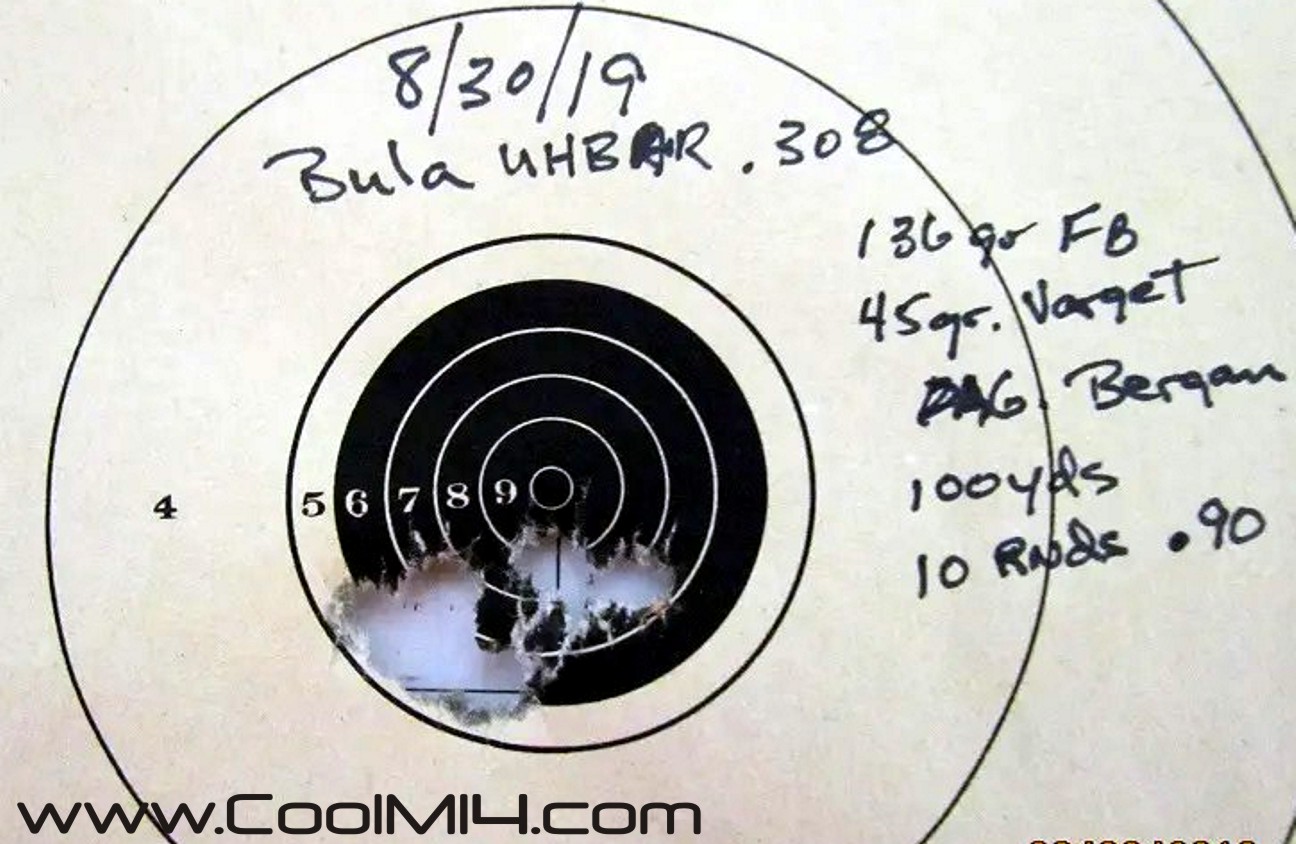 8/30/19
Bula UHBAR .308
136 gr FB
45gr. Varget
Bergan
100yds
4 5 6 7 8 9
10 Rnds .90
www.CoolM14.com